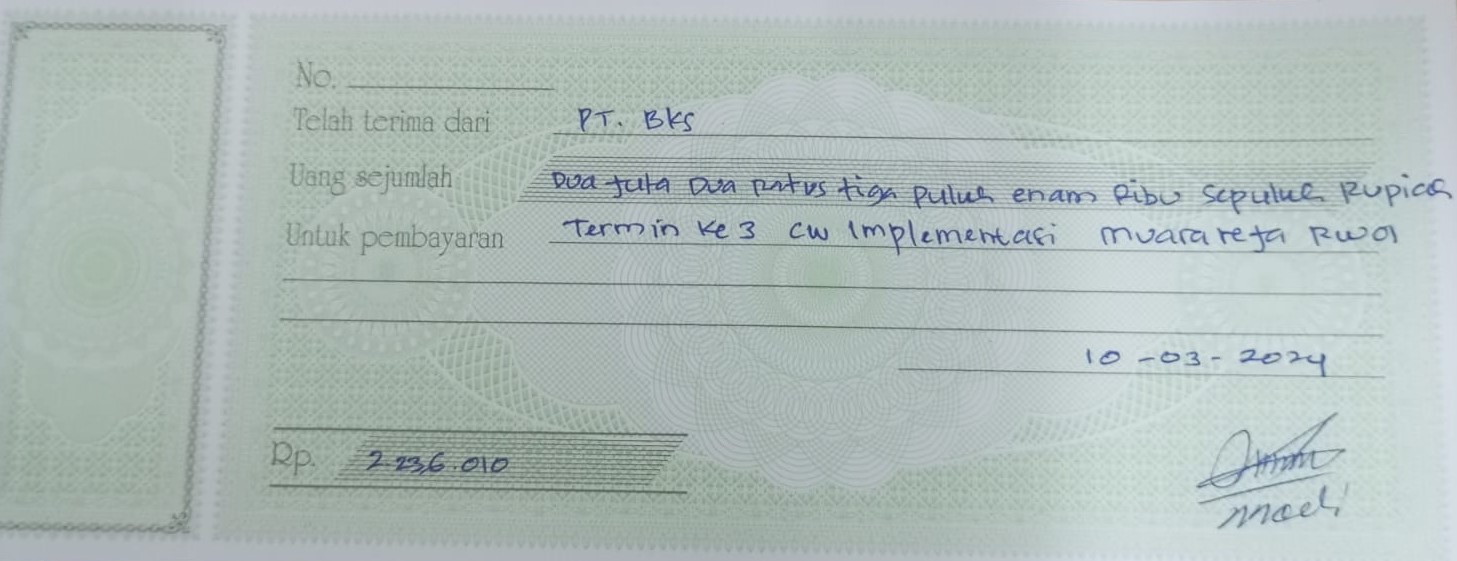 No.
Telah terima dari PT. BKS
Uang sejumlah Dua juta Dua ratus tiga puluh enam Ribu Sepuluh Rupiah
Untuk pembayaran Termin ke 3 CW Implementasi muarareja RW01
10-03-2024
Rp. 2.236.010